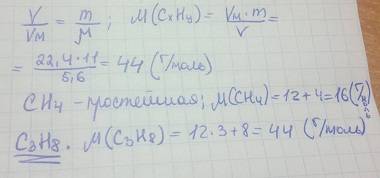 V/Vм = m/M; M(CxHy) = Vм·m/V =
= 22,4·11/5,6 = 44 (г/моль)
CH4 - простейшая; M(CH4) = 12+4 = 16 (г/моль)
C3H8. M(C3H8) = 12·3+8 = 44 (г/моль)